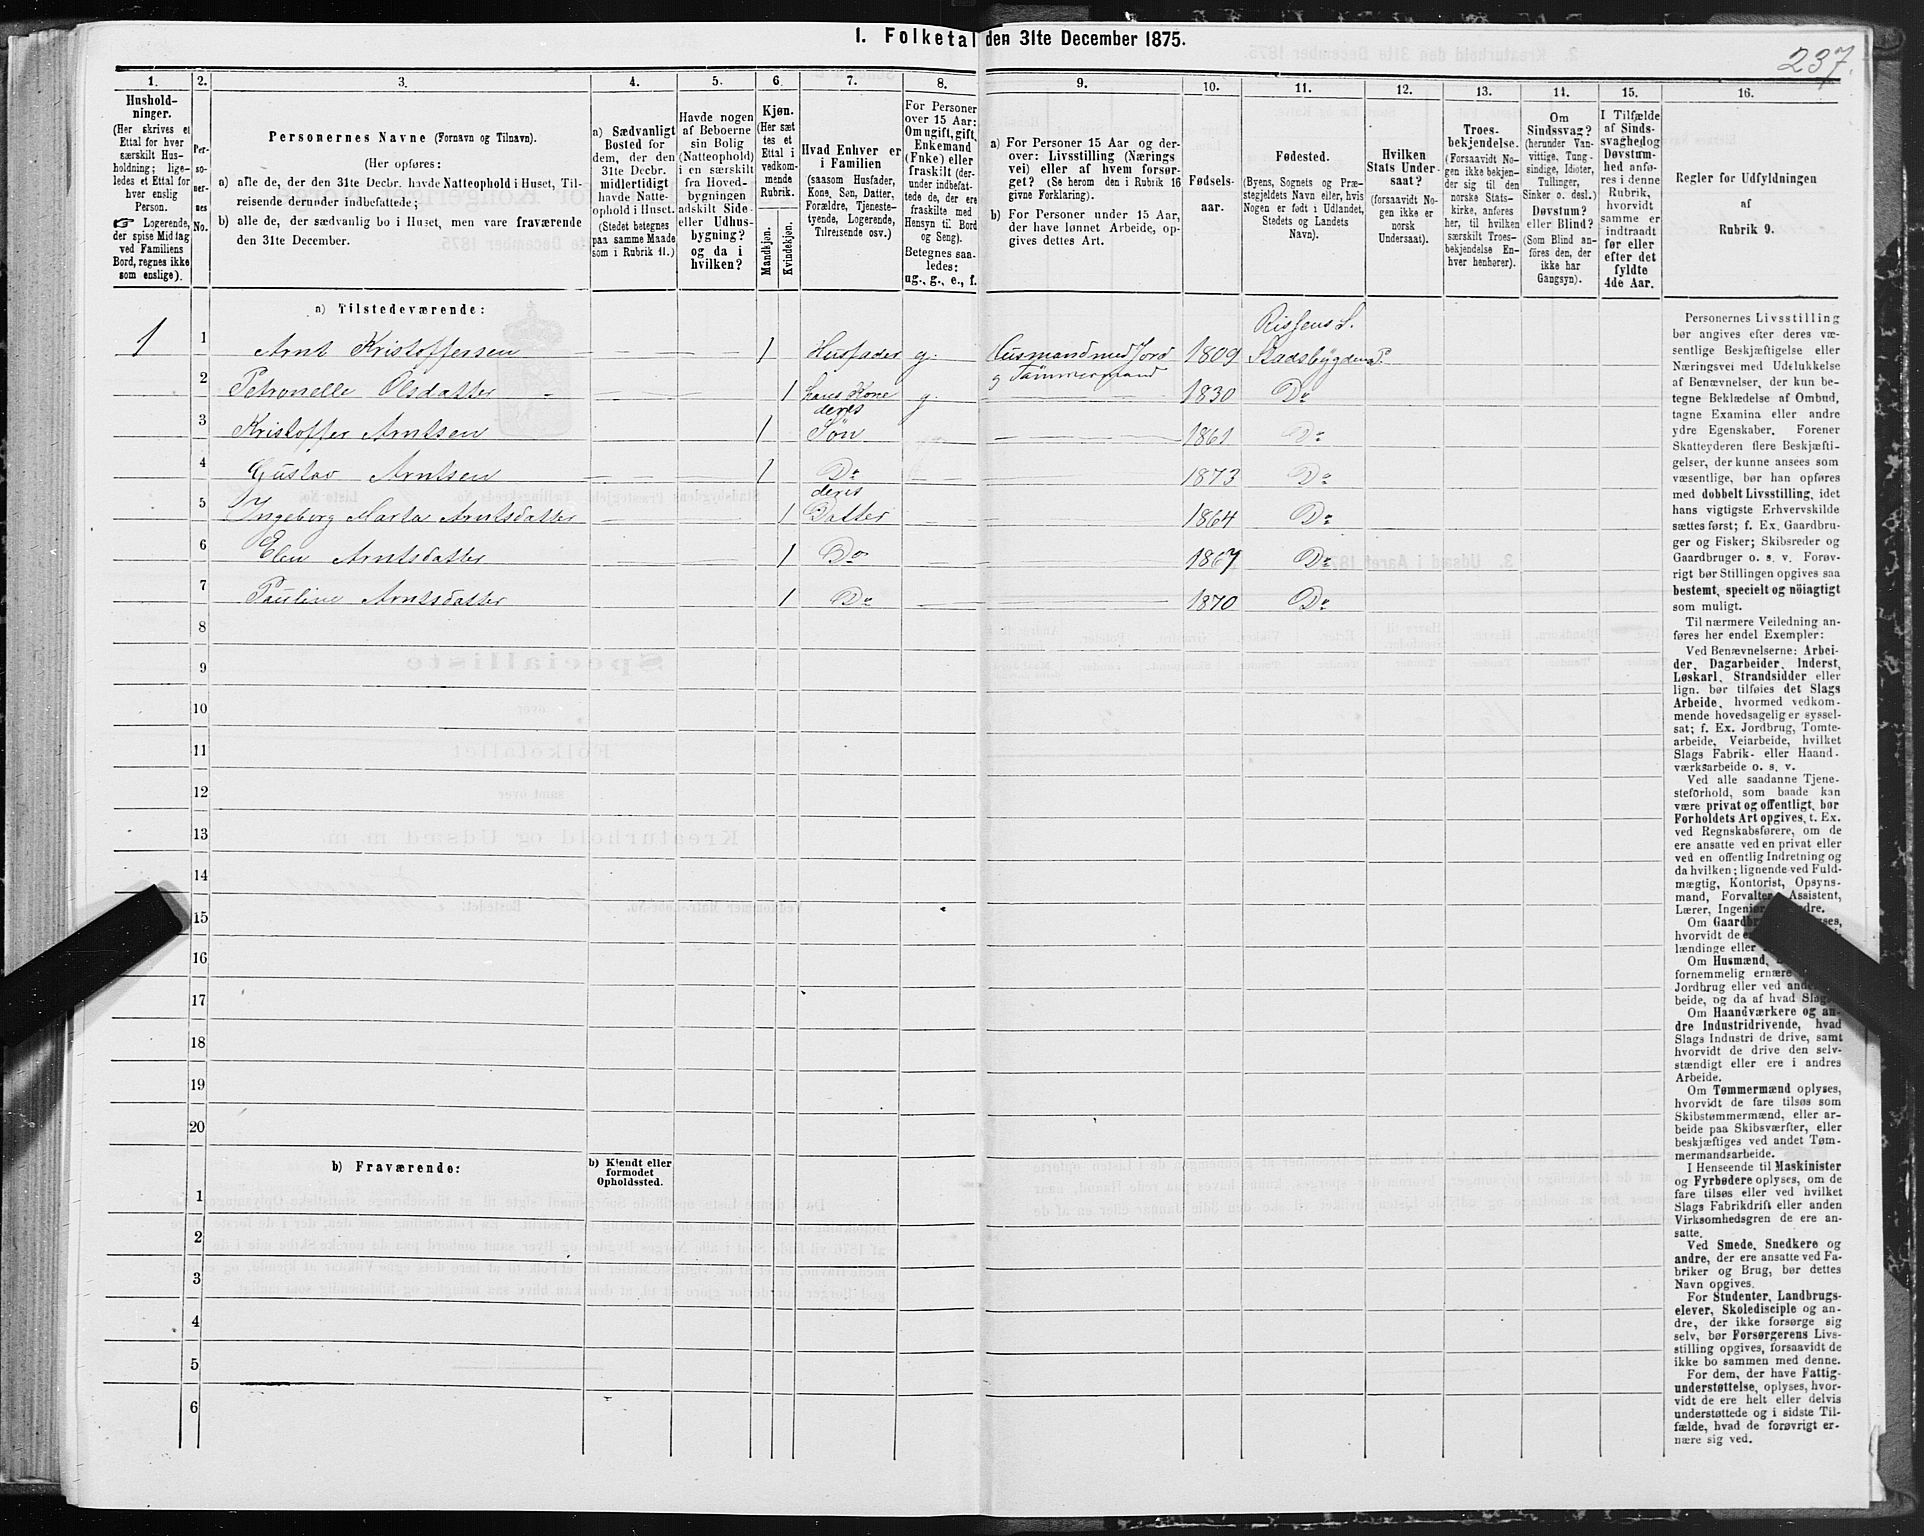 1. Folketal den 31te December 1875.
237.
1.
2.
3.
4.
5.
6.
7.
8.
9.
10.
11.
12.
13.
14.
15.
16.
Hushold-
ninger.
(Her skrives et
Ettal for hver
særskilt Hus-
holdning; lige-
ledes et Ettal for
hver enslig
Person.
☞ Logerende,
der spise Middag
ved Familiens
Bord, regnes ikke
som enslige).
Per-
so-
ner-
nes
No.
Personernes Navne (Fornavn og Tilnavn).
(Her opføres:
a) alle de, der den 31te Decbr. havde Natteophold i Huset, Til-
reisende derunder indbefattede;
b) alle de, der sædvanlig bo i Huset, men vare fraværende
den 31te December.
a) Sædvanligt
Bosted for
dem, der den
31te Decbr.
midlertidigt
havde Natte-
ophold i Huset.
(Stedet betegnes
paa samme Maade
som i Rubrik 11.)
Havde nogen
af Beboerne
sin Bolig
(Natteophold)
i en særskilt
fra Hoved-
bygningen
adskilt Side-
eller Udhus-
bygning?
og da i
hvilken?
Kjøn.
(Her sæt
tes et
Ettal i
vedkom-
mende
Rubrik.
Mandkjøn.
Kvindekjøn.
Hvad Enhver er
i Familien
(saasom Husfader,
Kone, Søn, Datter,
Forældre, Tjeneste-
tyende, Logerende,
Tilreisende osv.)
For Personer
over 15 Aar:
Om ugift, gift,
Enkemand
(Enke) eller
fraskilt (der-
under indbefat-
tede de, der ere
fraskilte med
Hensyn til Bord
og Seng).
Betegnes saa-
ledes:
ug., g., e., f.
a) For Personer 15 Aar og der-
over: Livsstilling (Nærings
vei) eller af hvem forsør-
get? (Se herom den i Rubrik 16
givne Forklaring).
b) For Personer under 15 Aar,
der have lønnet Arbeide, op-
gives dettes Art.
Fødsels-
aar.
Fødested.
(Byens, Sognets og Præ-
stegjeldets Navn eller, hvis
Nogen er født i Udlandet,
Stedets og Landets
Navn).
Hvilken
Stats Under-
saat?
(forsaavidt No-
gen ikke er
norsk
Undersaat).
Troes-
bekjendelse.
(Forsaavidt No-
gen ikke bekjen-
der sig til den
norske Stats-
kirke, anføres
her, til hvilken
særskilt Troes-
bekjendelse En-
hver henhører).
Om
Sindssvag?
(herunder Van-
vittige, Tung-
sindige, Idioter,
Tullinger,
Sinker o. desl.)
Døvstum?
eller Blind?
(Som Blind an-
føres den, der
ikke har
Gangsyn).
I Tilfælde
af Sinds-
svaghed og
Døvstum-
hed anfø-
res i denne
Rubrik,
hvorvidt
samme er
indtraadt
før eller
efter det
fyldte
4de Aar.
Regler for Udfyldningen
af
Rubrik 9.
a) Tilstedeværende:
Rissens S.
1 1 Arnt Kristoffersen 1 Husfader g. Husmand med Jord 1809 Stadsbygdens P.
g Tømmermand
2 Petronelle Olsdatter 1 hans Kone g. 1830 Do
deres
3 Kristoffer Arntsen 1 Søn 1861 Do
4 Gustav Arntsen 1 Do 1873 Do
deres
5 Ingeborg Marta Arntsdatter 1 Datter 1864 Do
6 Elen Arntsdatter 1 Do 1867 Do
7 Pauline Arntsdatter 1 Do 1870 Do
8
9
10
11
12
13
14
15
16
17
18
19
20
b) Fraværende:
b) Kjendt eller
formodet
Opholdssted.
1
2
3
4
5
6
Personernes Livsstilling
bør angives efter deres væ-
sentlige Beskjæftigelse eller
Næringsvei med Udelukkelse
af Benævnelser, der kun be-
tegne Beklædelse af Ombud,
tagne Examina eller andre
ydre Egenskaber. Forener
Skatteyderen flere Beskjæfti-
gelser, der kunne ansees som
væsentlige, bør han opføres
med dobbelt Livsstilling, idet
hans vigtigste Erhvervskilde
sættes først; f. Ex. Gaardbru-
ger og Fisker; Skibsreder og
Gaardbruger o. s. v. Forøv-
rigt bør Stillingen opgives saa
bestemt, specielt og nöiagtigt
som muligt.
Til nærmere Veiledning an-
føres her endel Exempler:
Ved Benævnelserne: Arbei-
der, Dagarbeider, Inderst,
Løskarl, Strandsidder eller
lign. bør tilføies det Slags
Arbeide, hvormed vedkom-
mende hovedsagelig er syssel-
sat; f. Ex. Jordbrug, Tomte-
arbeide, Veiarbeide, hvilket
Slags Fabrik- eller Haand-
værksarbeide o. s. v.
Ved alle saadanne Tjene-
steforhold, som baade kan
være privat og offentligt, bør
Forholdets Art opgives, t. Ex.
ved Regnskabsførere, om de
ere ansatte ved en privat eller
ved en offentlig Indretning og
da hvilken; lignende ved Fuld-
mægtig, Kontorist, Opsyns-
mand, Forvalter, Assistent,
Lærer, Ingeniør
Om
hvorvidt de
lændinge eller
Om Husmænd,
fornemmelig ernære
Jordbrug eller ved
beide, og da af hvad
Om Haandværkere og an-
dre Industridrivende, hvad
Slags Industri de drive, samt
hvorvidt de drive den selv-
stændigt eller ere i andres
Arbeide.
Om Tømmermænd oplyses,
hvorvidt de fare tilsøs som
Skibstømmermænd, eller ar-
beide paa Skibsværfter, eller
beskjæftiges ved andet Tøm-
mermandsarbeide.
I Henseende til Maskinister
og Fyrbødere oplyses, om de
fare tilsøs eller ved hvilket
Slags Fabrikdrift eller anden
Virksomhedsgren de ere an-
satte.
Ved Smede, Snedkere og
andre, der ere ansatte ved Fa-
briker og Brug, bør dettes
Navn opgives.
For Studenter, Landbrugs-
elever, Skoledisciple og an-
dre, der ikke forsørge sig
selv, bør Forsørgerens Livs-
stilling opgives, forsaavidt de
ikke bo sammen med denne.
For dem, der have Fattig-
understøttelse, oplyses, hvor-
vidt de ere helt eller delvis
understøttede og i sidste Til-
fælde, hvad de forøvrigt er-
nære sig ved.